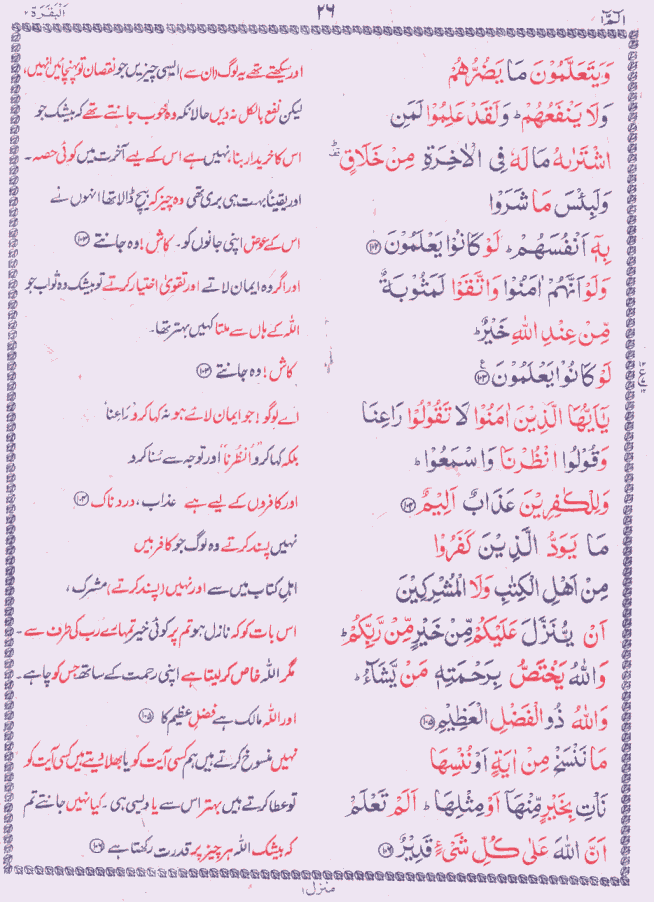 الٓمّٓ ١
٢٦
اَلْبَقَرَة ٢
وَيَتَعَلَّمُوْنَ مَا يَضُرُّهُمْ
اور سیکھتے تھے یہ لوگ (ان سے) ایسی چیزیں جو نقصان تو پہنچائیں انہیں،
وَلَا يَنْفَعُهُمْ ؕ وَلَقَدْ عَلِمُوْا لَمَنِ
لیکن نفع بالکل نہ دیں حالانکہ وہ خوب جانتے تھے کہ بیشک جو
اشْتَرٰىهُ مَا لَهٗ فِى الْاٰخِرَةِ مِنْ خَلَاقٍ ؕ
اس کا خریدار بنا، نہیں ہے اس کے لیے آخرت میں کوئی حصہ۔
وَلَبِئْسَ مَا شَرَوْا
اور یقیناً بہت ہی بری تھی وہ چیز کہ بیچ ڈالا تھا انہوں نے
بِهٖۤ اَنْفُسَهُمْ ؕ لَوْ كَانُوْا يَعْلَمُوْنَ ۝۱۰۲
اس کے عوض اپنی جانوں کو۔ کاش! وہ جانتے ۝۱۰۲
وَلَوْ اَنَّهُمْ اٰمَنُوْا وَاتَّقَوْا لَمَثُوْبَةٌ
اور اگر وہ ایمان لاتے اور تقویٰ اختیار کرتے تو بیشک وہ ثواب جو
مِّنْ عِنْدِ اللّٰهِ خَيْرٌ ؕ
اللہ کے ہاں سے ملتا کہیں بہتر تھا۔
لَوْ كَانُوْا يَعْلَمُوْنَ ۝۱۰۳ ع
کاش! وہ جانتے ۝۱۰۳
يٰۤاَيُّهَا الَّذِيْنَ اٰمَنُوْا لَا تَقُوْلُوْا رَاعِنَا
اے لوگو! جو ایمان لائے ہو نہ کہا کرو ’’رَاعِنَا‘‘
وَقُوْلُوا انْظُرْنَا وَاسْمَعُوْا ؕ
بلکہ کہا کرو ’’اُنْظُرْنَا‘‘ اور توجہ سے سُنا کرو
وَلِلْكٰفِرِيْنَ عَذَابٌ اَلِيْمٌ ۝۱۰۴
اور کافروں کے لیے ہے عذاب، دردناک ۝۱۰۴
مَا يَوَدُّ الَّذِيْنَ كَفَرُوْا
نہیں پسند کرتے وہ لوگ جو کافر ہیں
مِنْ اَهْلِ الْكِتٰبِ وَلَا الْمُشْرِكِيْنَ
اہلِ کتاب میں سے اور نہیں (پسند کرتے) مشرک،
اَنْ يُّنَزَّلَ عَلَيْكُمْ مِّنْ خَيْرٍ مِّنْ رَّبِّكُمْ ؕ
اس بات کو کہ نازل ہو تم پر کوئی خیر تمہارے رب کی طرف سے۔
وَاللّٰهُ يَخْتَصُّ بِرَحْمَتِهٖ مَنْ يَّشَآءُ ؕ
مگر اللہ خاص کر لیتا ہے اپنی رحمت کے ساتھ جس کو چاہے۔
وَاللّٰهُ ذُو الْفَضْلِ الْعَظِيْمِ ۝۱۰۵
اور اللہ مالک ہے فضلِ عظیم کا ۝۱۰۵
مَا نَنْسَخْ مِنْ اٰيَةٍ اَوْ نُنْسِهَا
نہیں منسوخ کرتے ہیں ہم کسی آیت کو یا بھلا دیتے ہیں کسی آیت کو
نَاْتِ بِخَيْرٍ مِّنْهَاۤ اَوْ مِثْلِهَا ؕ اَلَمْ تَعْلَمْ
تو عطا کرتے ہیں بہتر اس سے یا ویسی ہی۔ کیا نہیں جانتے تم
اَنَّ اللّٰهَ عَلٰى كُلِّ شَىْءٍ قَدِيْرٌ ۝۱۰۶
کہ بیشک اللہ ہر چیز پر قدرت رکھتا ہے ۝۱۰۶
منزل ١